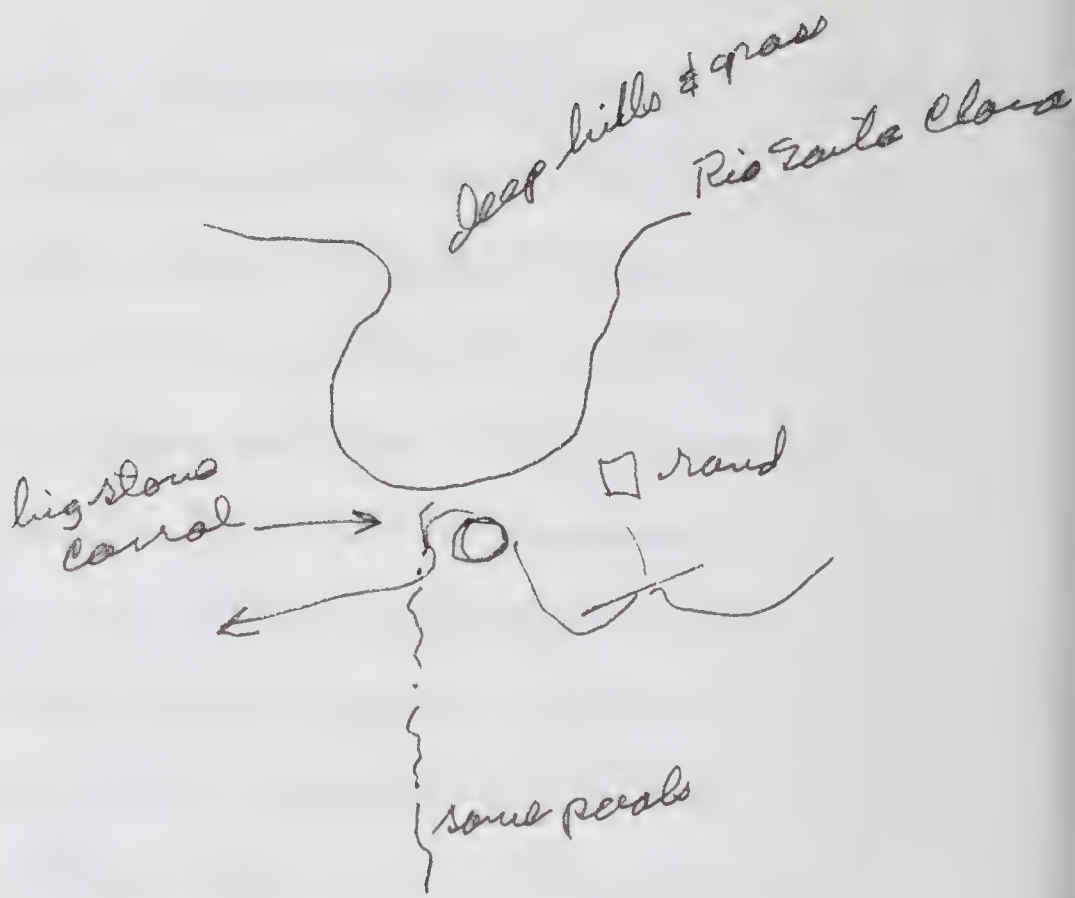 deep hills & grass
Rio Santa Clara
big stone
corral
some pools